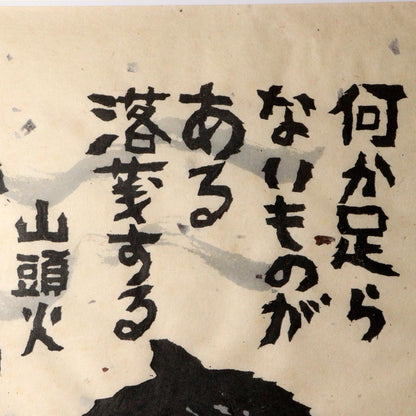 何か足ら
ないものが
ある
落葉する
山頭火